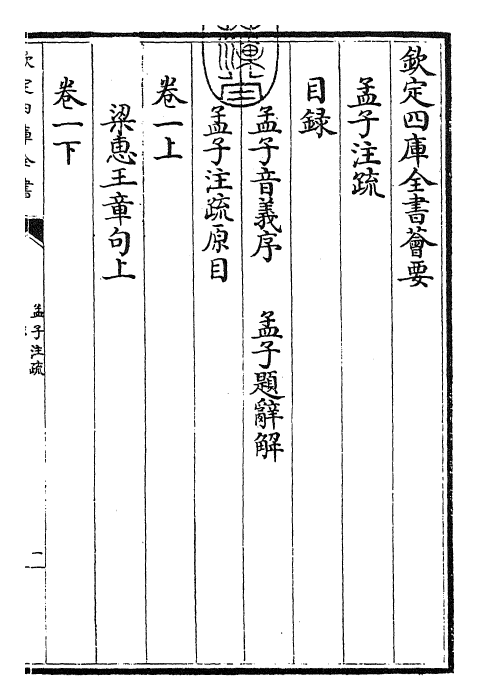 欽定四庫全書薈要
孟子注疏
目録
孟子音義序　孟子題辭解
孟子注疏原目
卷一上
梁惠王章句上
卷一下
欽定四庫全書
孟子注疏
二